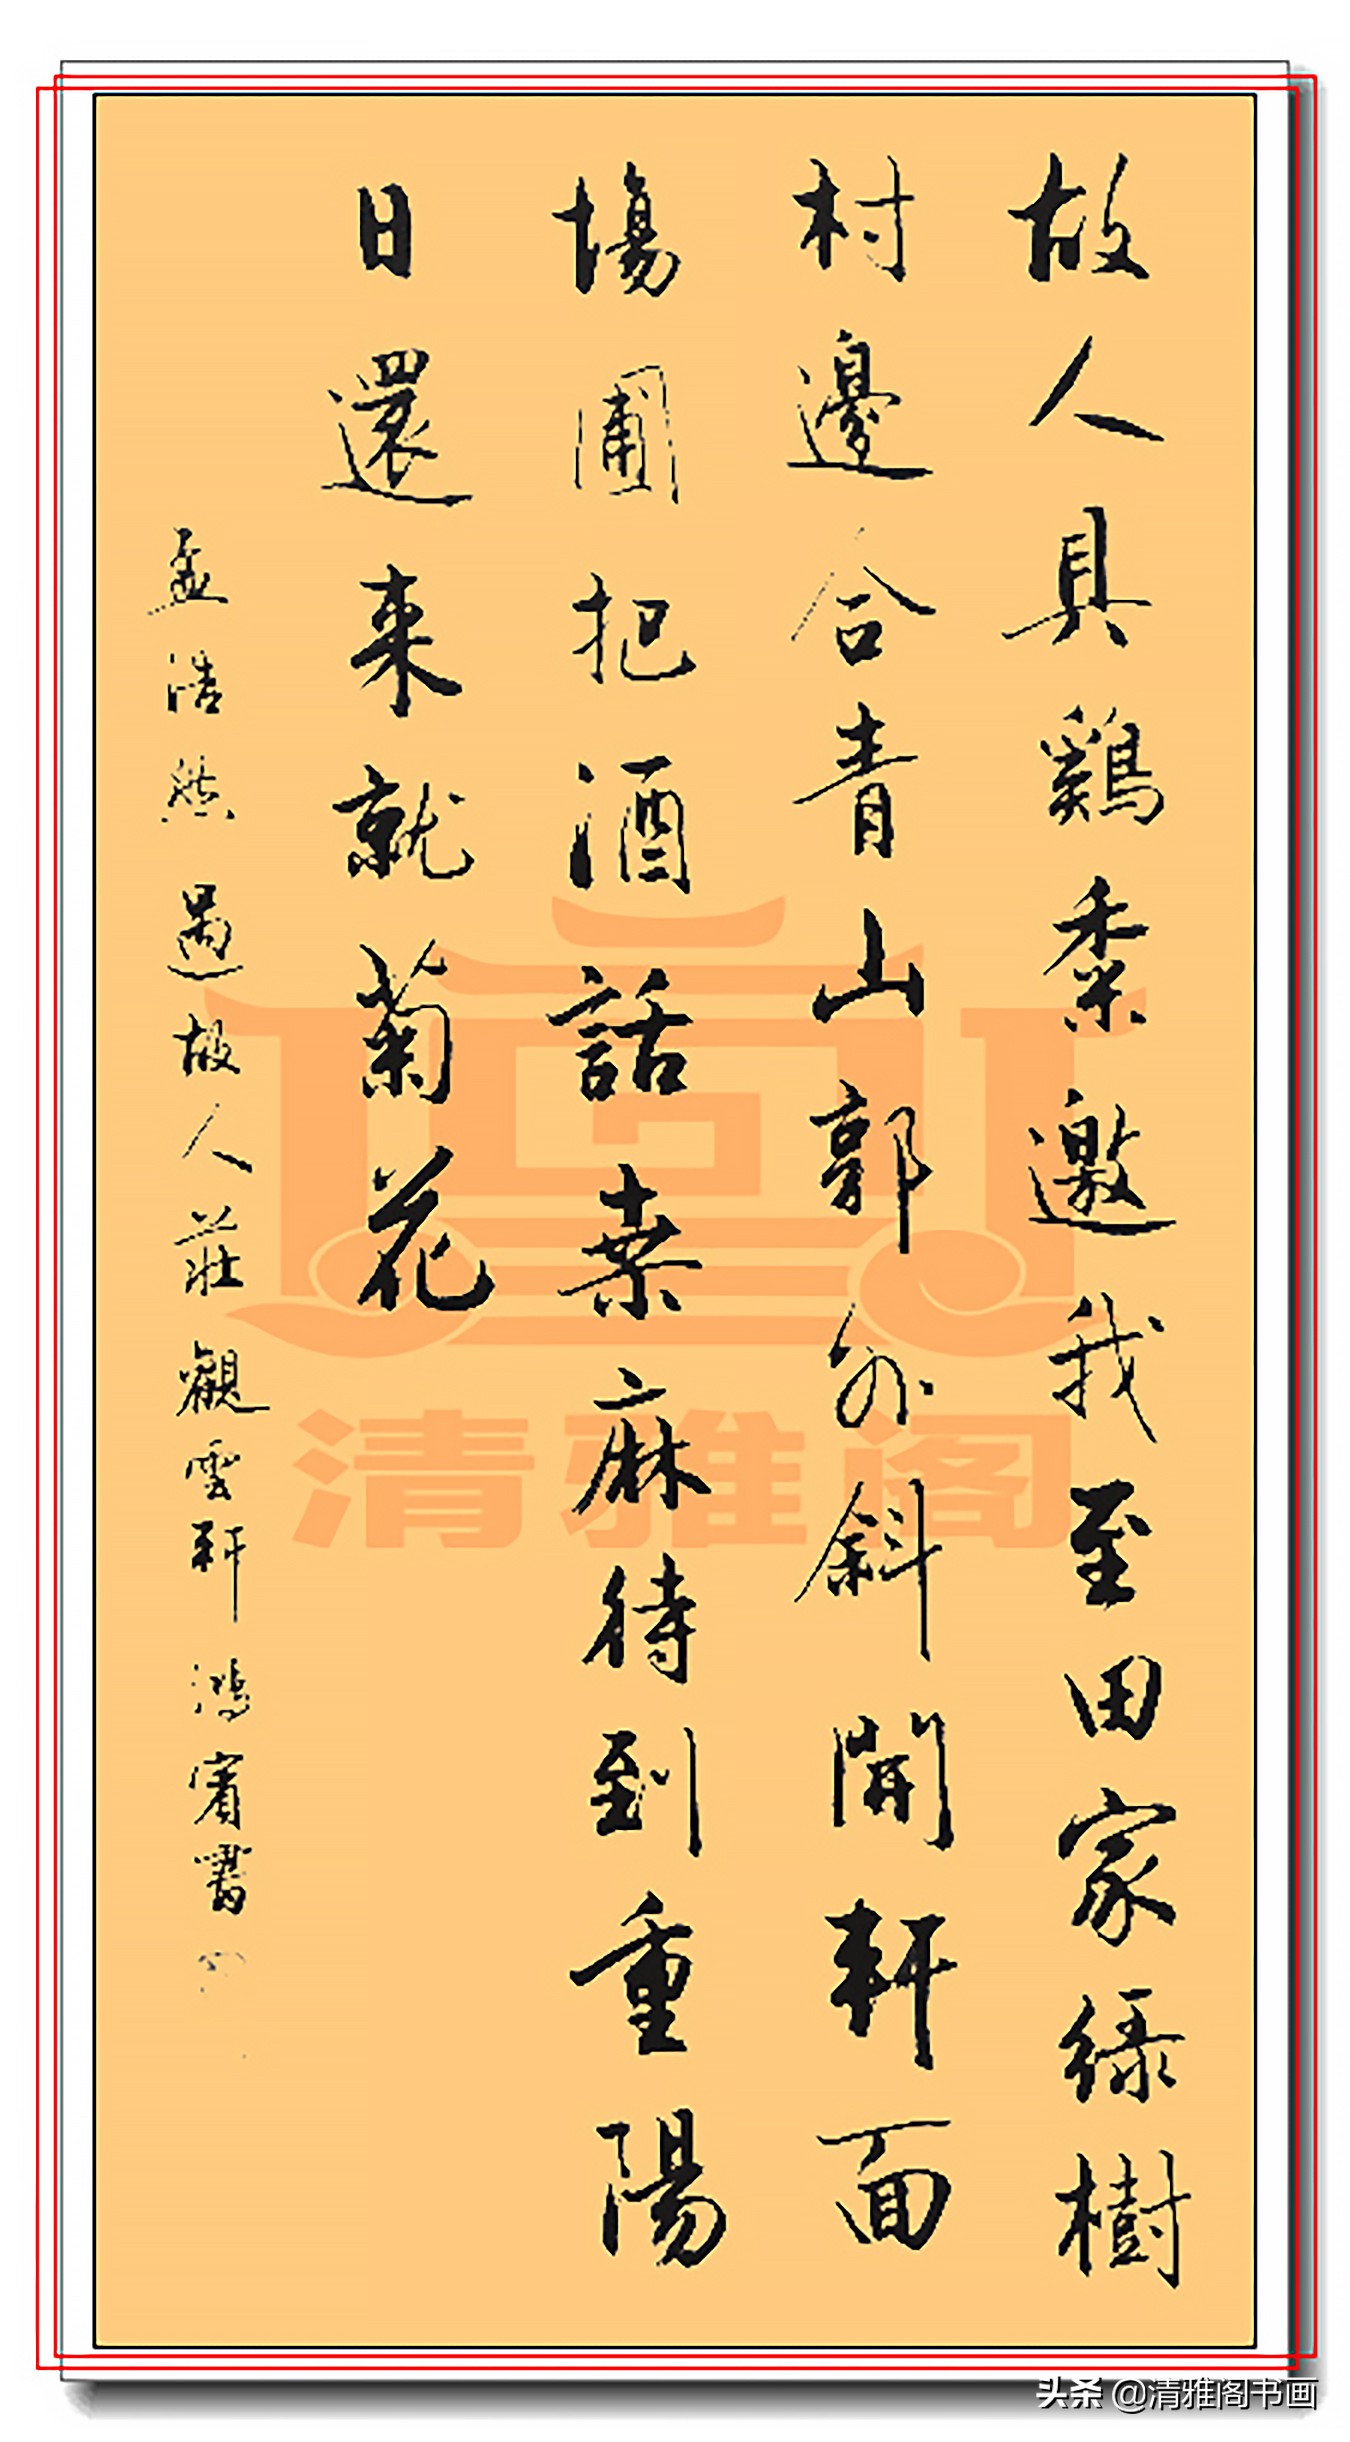 故人具鷄黍邀我至田家緑樹
村邊合青山郭外斜開軒面
場圃把酒話桒麻待到重陽
日還来就菊花
孟浩然過故人莊觀雲軒鴻賓書
清雅阁
头条 @清雅阁书画